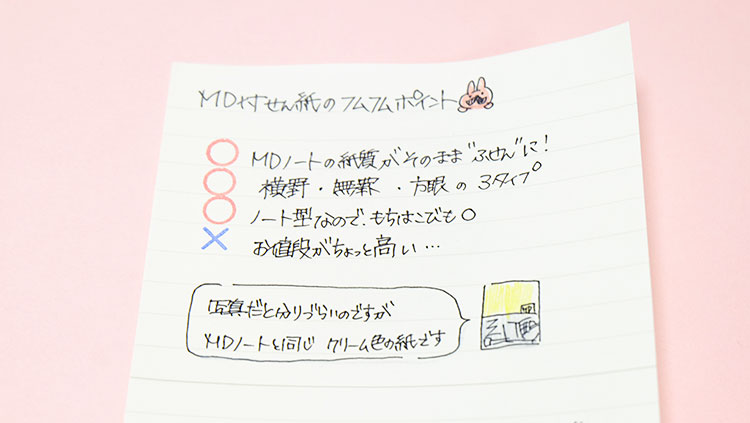 MD付せん紙のフムフムポイント
○ MDノートの紙質がそのまま"ふせん"に!
○ 横野・無罫・方眼の3タイプ
○ ノート型なので、もちはこびも○
× お値段がちょっと高い…
写真だと分りづらいのですが
MDノートと同じクリーム色の紙です
MD